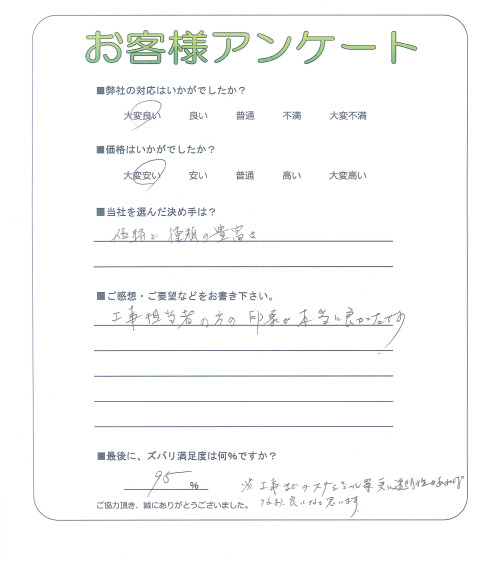 お客様アンケート
■弊社の対応はいかがでしたか?
大変良い 良い 普通 不満 大変不満
■価格はいかがでしたか?
大変安い 安い 普通 高い 大変高い
■当社を選んだ決め手は?
価格と種類の豊富さ
■ご感想・ご要望などをお書き下さい。
工事担当者の方の印象が本当に良かったです
■最後に、ズバリ満足度は何%ですか?
95 %
※工事までのスケジュール等更に透明性があれば
なお、良いなと思います
ご協力頂き、誠にありがとうございました。